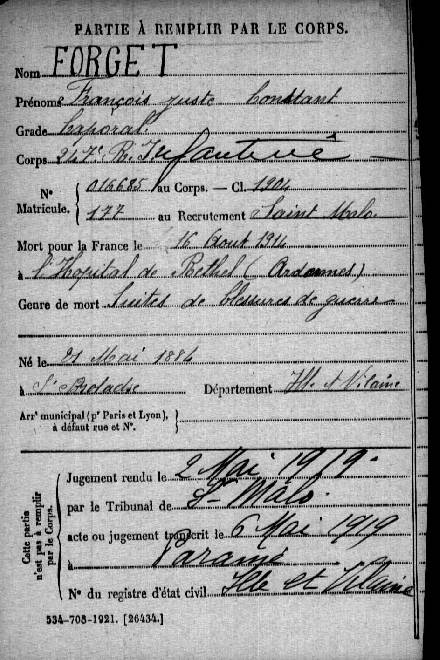 PARTIE À REMPLIR PAR LE CORPS.
Nom FORGET
Prénoms François Juste Constant
Grade Caporal
Corps 247e R. Infanterie
Nº Matricule. { 016685 au Corps. — Cl. 1904
177 au Recrutement Saint Malo
Mort pour la France le 16 Aout 1914
à l'Hopital de Rethel (Ardennes)
Genre de mort Suites de blessures de guerre
Né le 21 Mai 1884
à St Broladre Département Ille et Vilaine
Arrt municipal (pr Paris et Lyon),
à défaut rue et Nº.
Cette partie n'est pas à remplir par le Corps.
Jugement rendu le 2 Mai 1919.
par le Tribunal de St Malo.
acte ou jugement transcrit le 6 Mai 1919
à Paramé
Nº du registre d'état civil Ille et Vilaine
534-708-1921. [26434.]